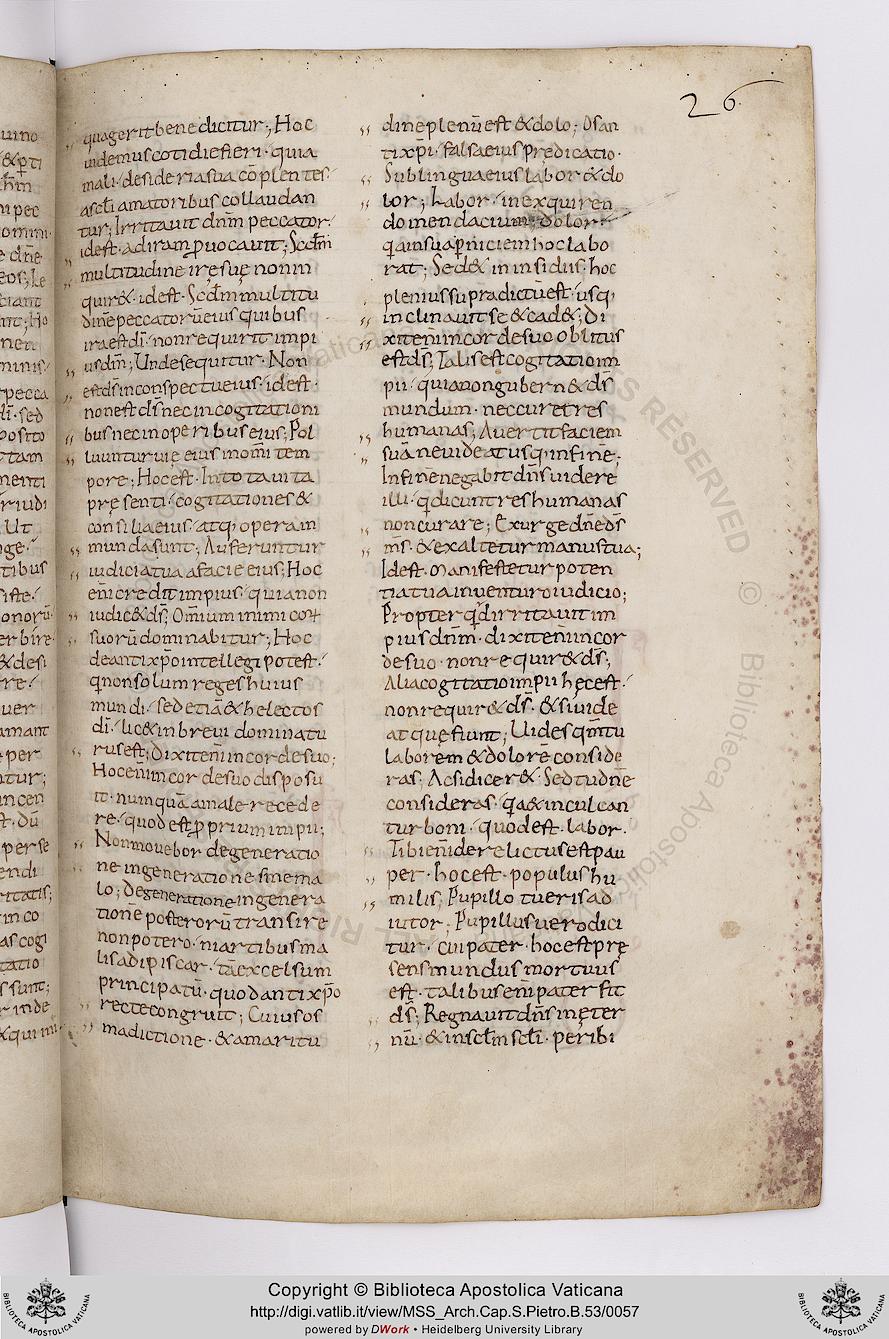 26.
quagerit bene dicitur; Hoc
uidemus cotidie fieri· quia
mali· desideria sua cōplentes·
ascłi amatoribus collaudan
tur; Irritauit dn̄m peccator·
idest· ad iram ꝓuocauit; Scdm̄
multitudinē irę suę non in
quir&· idest· Scdm̄ multitu
dinē peccatorū eius quibus
ira est dī· non requirit impi
us dm̄; Unde sequitur· Non
est ds̄ in conspectu eius· idest·
non est ds̄ nec in cogitationi
bus nec in operibus eius; Pol
luuntur uię eius in om̄i tem
pore; Hoc est· In tota uita
presenti· cogitationes &
consilia eius· atq; opera in
munda sunt; Auferuntur
iudicia tua a facie eius; Hoc
eni̅ credit impius· quia non
iudic& ds̄; Om̄ium inimicoꝝ
suorū dominabitur; Hoc
de antixp̄o intellegi potest·
q̄ non solum reges huius
mundi· sed etiā & helectos
dī· lic& in breui dominatu
rus est; Dixit en̄i in corde suo;
Hoc en̄i in corde suo disposu
it· nunquā a male recede
re· quod est ꝓprium impii;
Non mouebor de generatio
ne in generatione sine ma
lo; de generatione in genera
tionē posterorū transire
non potero· ni artibus ma
lis adipiscar· tā excelsum
principatū· quod antixp̄o
recte congruit; Cuius os
madictione· & amaritu
dinē plenū est & dolo; Os an
tixp̄i· falsa eius predicatio·
Sub lingua eius labor & do
lor; Labor· in exquiren
do mendacium· dolor·
q̄a in sua ꝑniciem hoc labo
rat; Sed & in insidiis· hoc
plenius supra dictū est· usq;
inclinauit se & cad&; Di
xit en̄i in corde suo oblitus
est ds̄; Talis est cogitatio im
pii· quia non gubern& ds̄
mundum· nec curet res
humanas; Auertit faciem
suā ne uideat usq; in finē;
In finē negabit dn̄s uidere
illi· q̄ dicunt res humanas
non curare; Exurge dn̄e ds̄
m̄s· & exaltetur manus tua;
Idest· Manifestetur poten
tia tua in uenturo iudicio;
Propter q̄d irritauit im
pius dn̄m· dixit en̄i in cor
de suo· non requir& ds̄;
Alia cogitatio impii hęc est·
non requir& ds̄· & si uide
at que fiunt; Uides qm̄ tu
laborēm & dolorē conside
ras; Ac si dicer&· Sed tu dn̄e
consideras· q̄a & inculcan
tur boni· quod est· labor·
Tibi en̄i derelictus est pau
per· hoc est· populus hu
milis; Pupillo tu eris ad
iutor; Pupillus uero dici
tur· cui pater· hoc est prę
sens mundus mortuus
est· talibus en̄i pater fit
ds̄; Regnauit dn̄s in ęter
nū· & in scłm scłi· peribi
Copyright © Biblioteca Apostolica Vaticana
http://digi.vatlib.it/view/MSS_Arch.Cap.S.Pietro.B.53/0057
powered by DWork • Heidelberg University Library